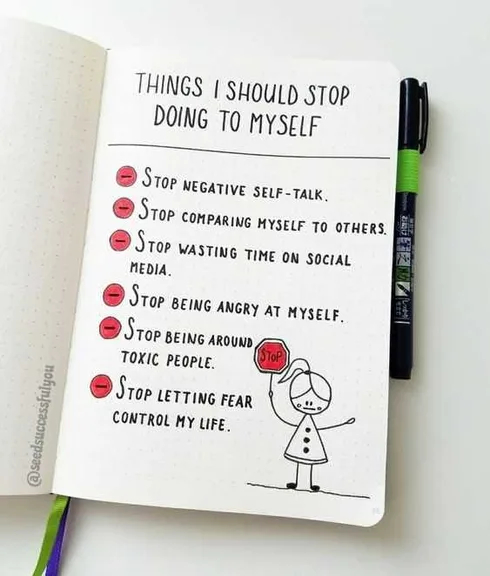 THINGS I SHOULD STOP
DOING TO MYSELF
STOP NEGATIVE SELF-TALK.
STOP COMPARING MYSELF TO OTHERS.
STOP WASTING TIME ON SOCIAL
MEDIA.
STOP BEING ANGRY AT MYSELF.
STOP BEING AROUND
TOXIC PEOPLE.
STOP LETTING FEAR
CONTROL MY LIFE.
STOP
@seedsuccessfulyou